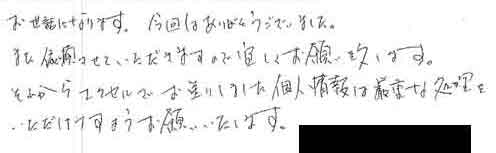 お世話になります。今回はありがとうございました。
また依頼させていただきますので宜しくお願い致します。
それからエクセルでお送りしました個人情報は厳重な処理を
いただけますようお願いいたします。